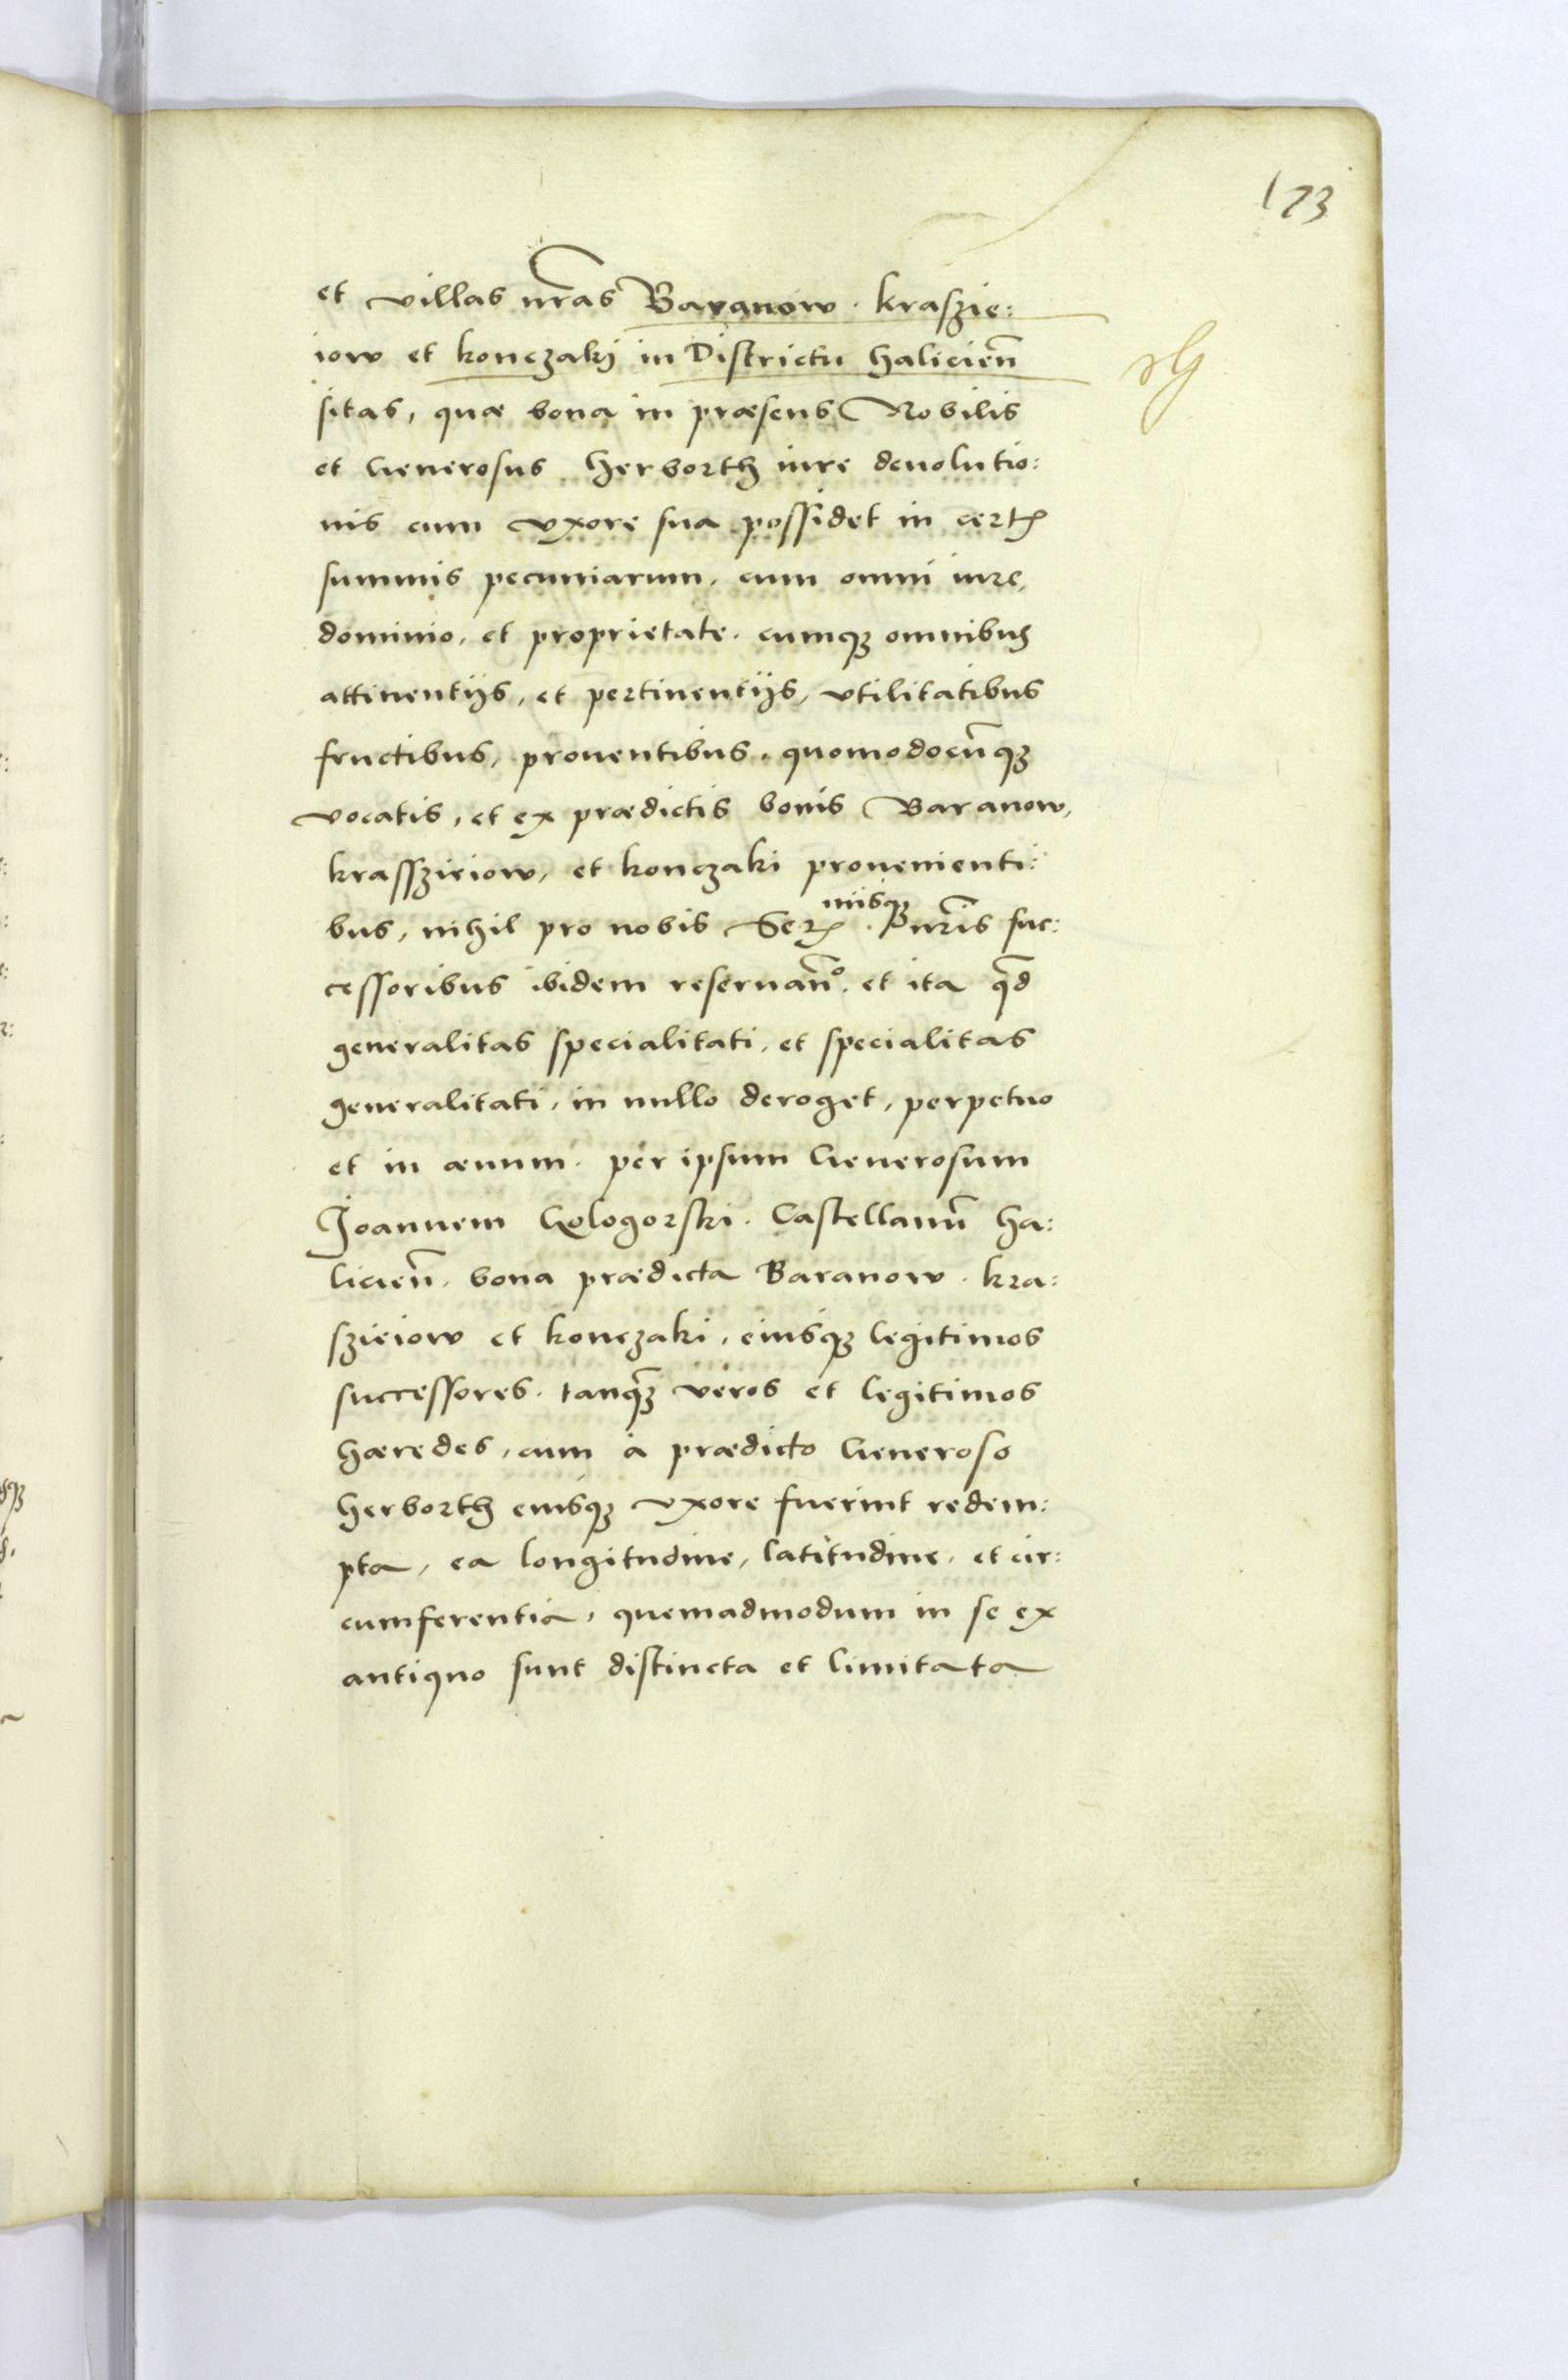 173
et villas nr̃as Baranow. kraszie:
iow et konczaki in Districtu halicien̄
sitas, quæ bona in præsens Nobilis
et Generosus herborth iure deuolutio:
nis cum vxore sua possidet in certꝭ
summis pecuniarum, cum omni iure,
dominio, et proprietate. cumqꝫ omnibus
attinentijs, et pertinentijs, vtilitatibus
fructibus, prouentibus, quomodocūqꝫ
vocatis, et ex prædictis bonis Baranow,
krassзieiow, et konczaki prouenienti:
nīsqꝫ
bus, nihil pro nobis Ser. nr̃is suc:
cessoribus ibidem reseruan̄º. et ita qd̄
generalitas specialitati, et specialitas
generalitati, in nullo deroget, perpetuo
et in æuum. per ipsum Generosum
Joannem Gologorski. Castellanū ha:
licien̄. bona prædicta Baranow. kra:
szieiow et konczaki, eiusqꝫ legitimos
successores. tanqꝫ veros et legitimos
hæredes, cum à prædicto Generoso
herborth eiusqꝫ vxore fuerint redem:
pta, ea longitudine, latitudine, et cir:
cumferentia, quemadmodum in se ex
antiquo sunt distincta et limitata